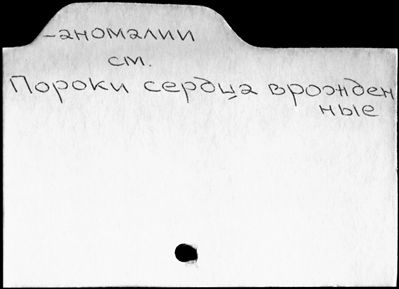 -аномалии
см.
Пороки сердца врожден
ные